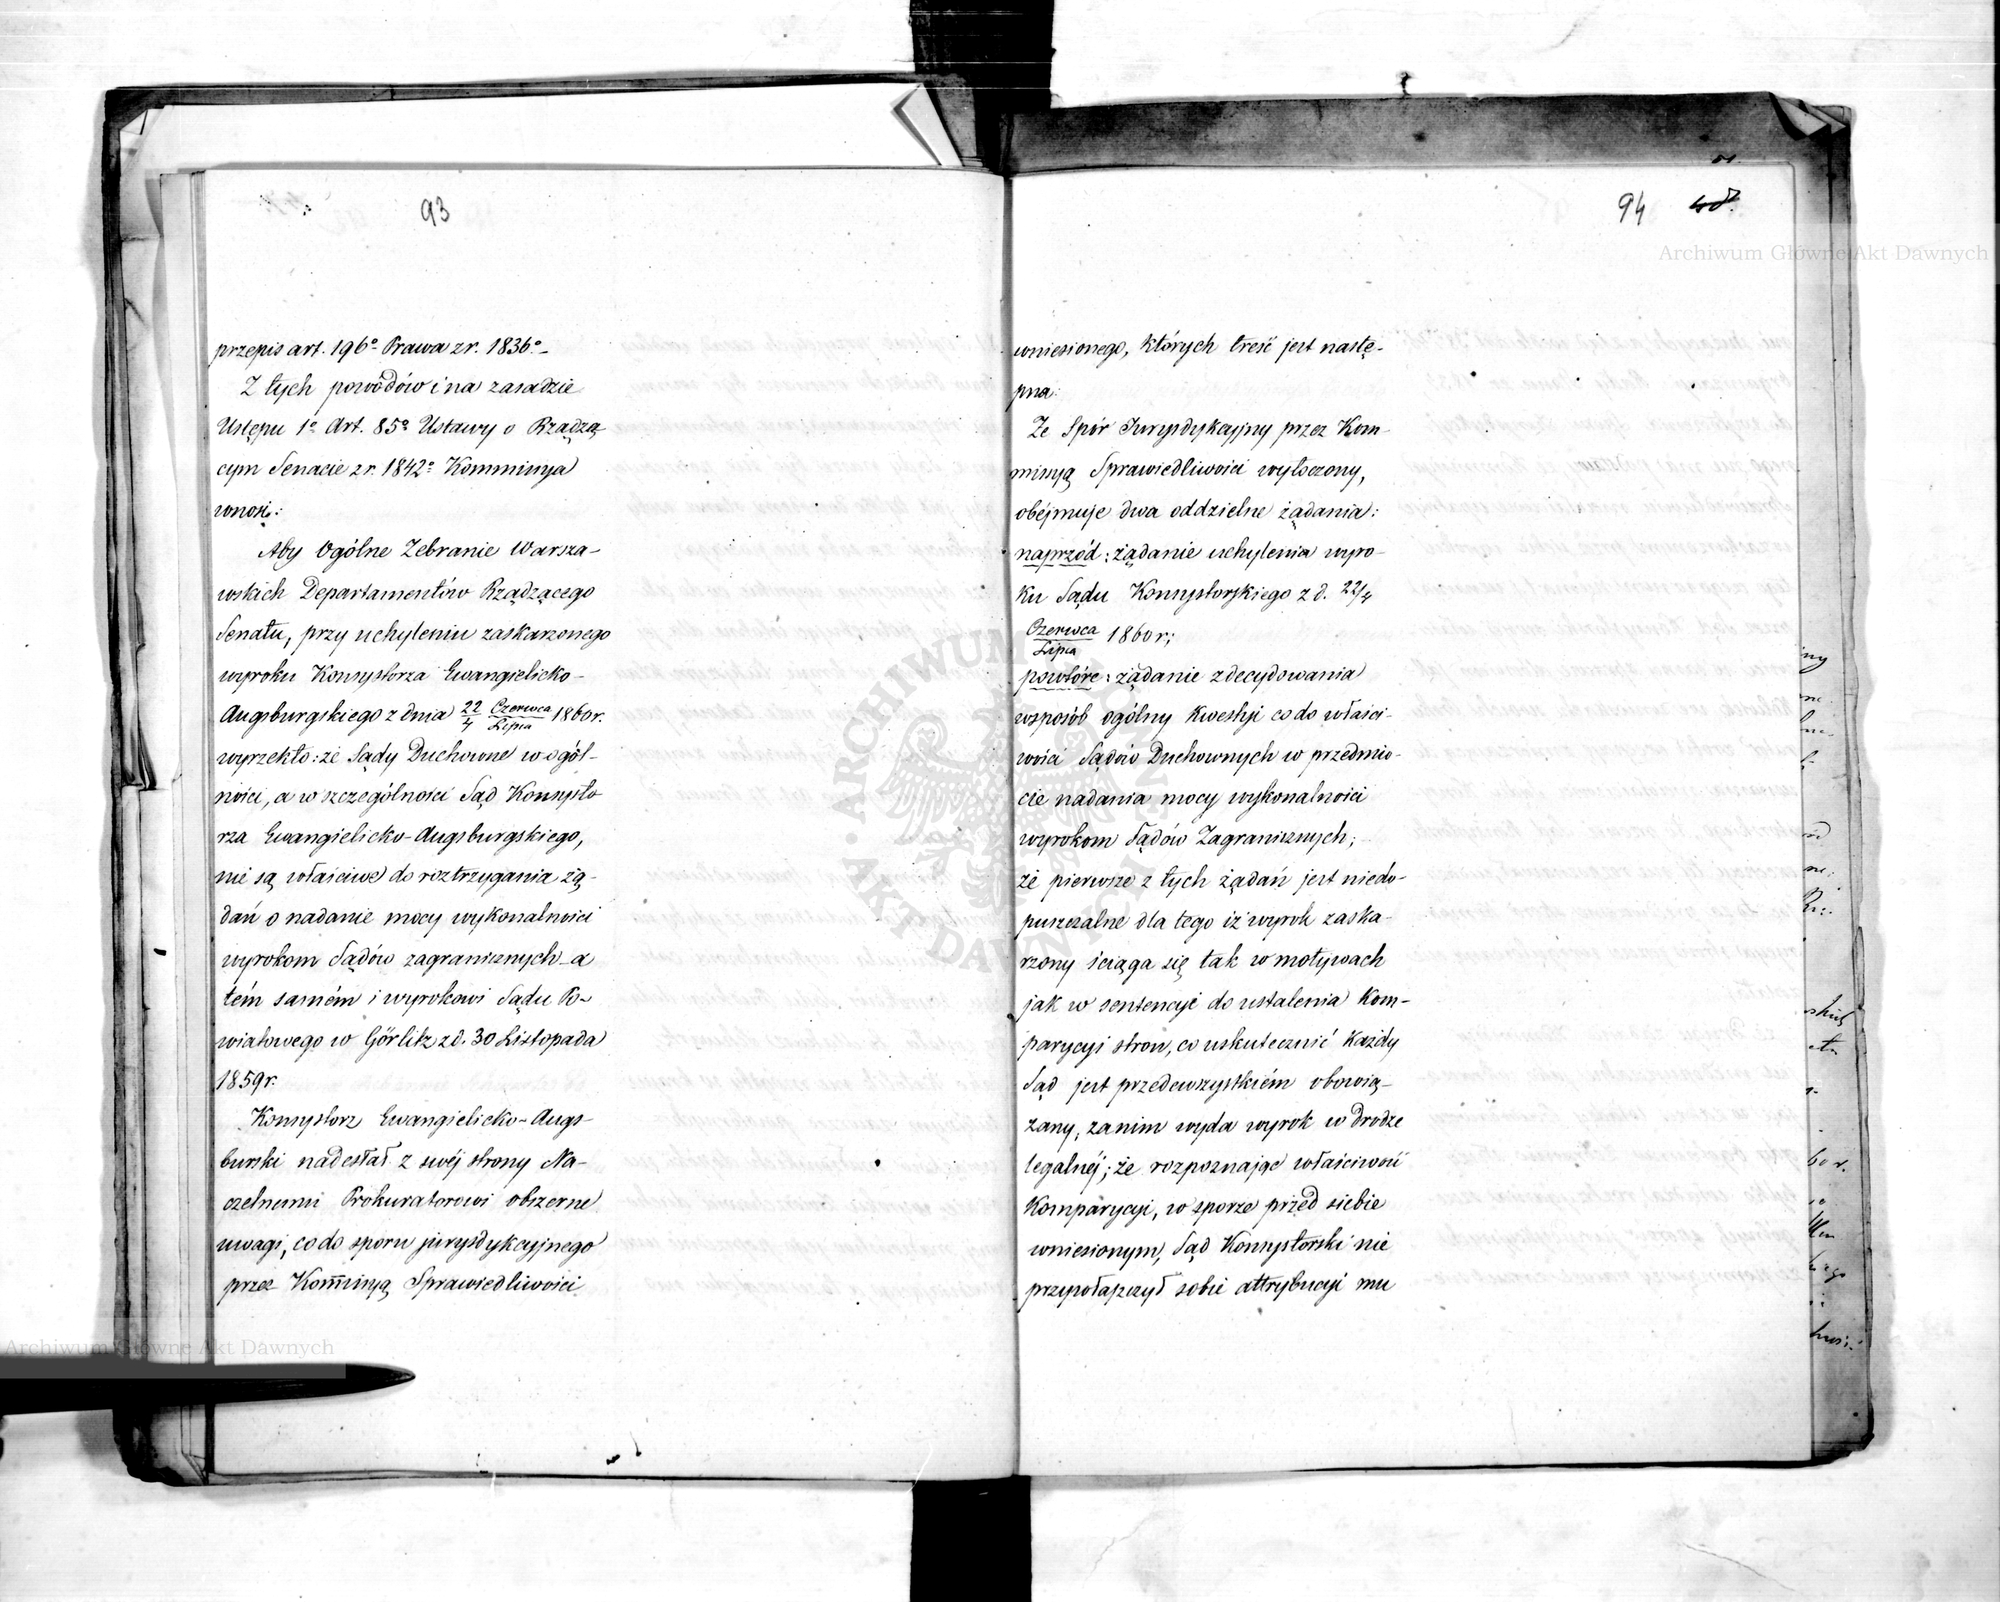 93
przepis art. 196º Prawa z r. 1836º_
Z tych powodów i na zasadzie
Ustępu 1º Art. 85º Ustawy o Rządzą
cym Senacie z r. 1842º Kommissya
wnosi:
Aby Ogólne Zebranie Warsza-
wskich Departamentów Rządzącego
Senatu, przy uchyleniu zaskarzonego
wyroku Konsystorza Ewangielicko-
Augsburgskiego z dnia 22/4 Czerwca/Lipca 1860 r.
wyrzekło: że Sądy Duchowne w ogól-
ności, a w szczególności Sąd Konsysto
rza Ewangielicko-Augsburgskiego,
nie są właściwe do roztrzygania żą-
dań o nadanie mocy wykonalności
wyrokom Sądów zagranicznych a
tém samém i wyrokowi Sądu Po-
wiatowego w Görlitz z d. 30 Listopada
1859 r.
Konsystorz Ewangielicko-Augs-
burski nadesłał z swéj strony Na-
czelnemu Prokuratorowi obszerne
uwagi, co do sporu jurysdykcyjnego
przez Kom̄issyą Sprawiedliwości
94 48.
wniesionego, których treść jest nastę-
pna:
Że Spór Jurysdykcyjny przez Kom-
missyą Sprawiedliwości wytoczony,
obéjmuje dwa oddzielne żądania:
naprzód: żądanie uchylenia wyro-
ku Sądu Konsystorskiego z d. 22/4
Czerwca/Lipca 1860 r;
powtóre: żądanie zdecydowania
w sposób ogólny Kwestyi co do właści-
wości Sądów Duchownych w przedmio-
cie nadania mocy wykonalności
wyrokom Sądów Zagranicznych;
że pierwsze z tych żądań jest niedo-
puszczalne dla tego iż wyrok zaska-
rzony ściąga się tak w motywach
jak w sentencyi do ustalenia Kom-
parycyi stron, co uskutecznić Każdy
Sąd jest przedewszystkiém obowią-
zany, zanim wyda wyrok w drodze
legalnéj; że rozpoznając właściwość
Komparycyi, w sporze przed siebie
wniesionym, Sąd Konsystorski nie
przywłaszczył sobie attrybucyi mu
Archiwum Główne Akt Dawnych
Archiwum Główne Akt Dawnych
ARCHIWUM GŁÓWNE AKT DAWNYCH